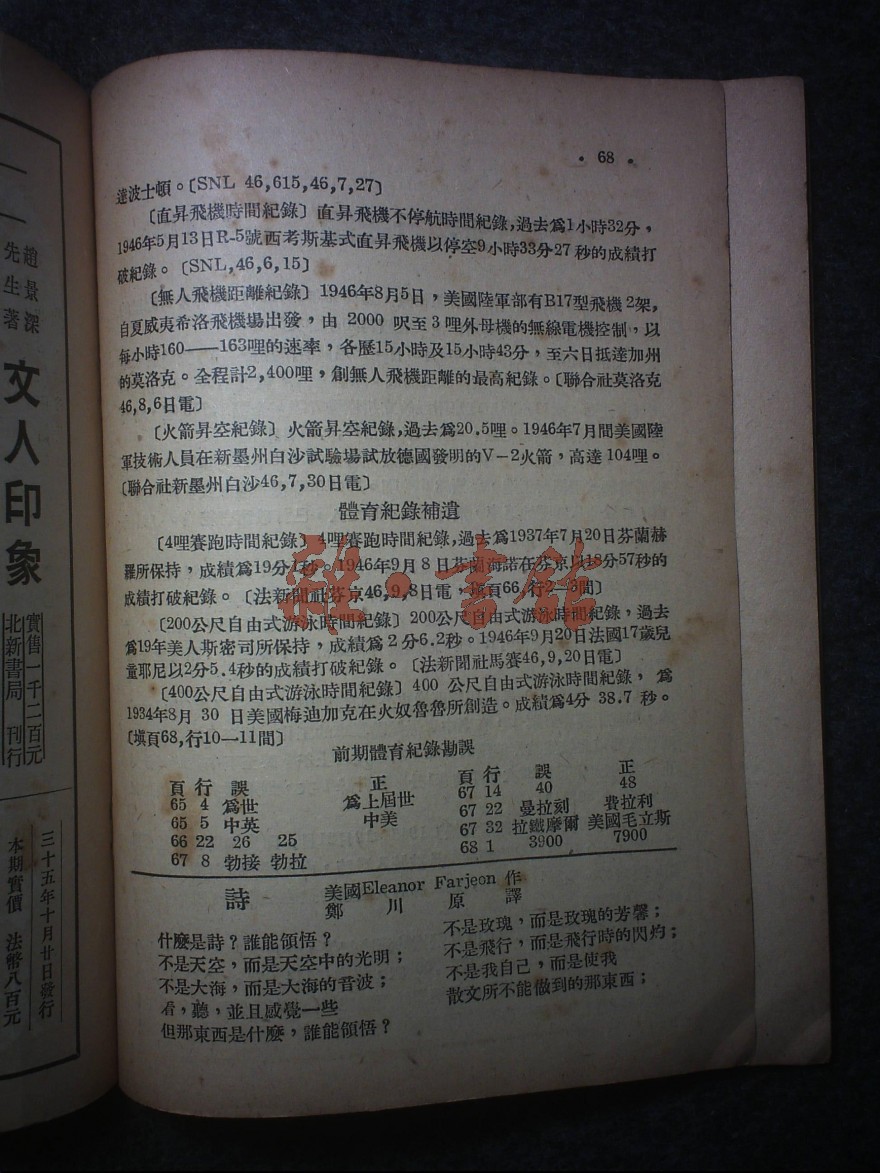 • 68 •
達波士頓。〔SNL 46,615,46,7,27〕
〔直昇飛機時間紀錄〕直昇飛機不停航時間紀錄,過去爲1小時32分，
1946年5月13日R-5號西考斯基式直昇飛機以停空9小時33分27秒的成績打
破紀錄。〔SNL,46,6,15〕
〔無人飛機距離紀錄〕1946年8月5日，美國陸軍部有B17型飛機2架,
自夏威夷希洛飛機場出發，由 2000 呎至3哩外母機的無線電機控制，以
每小時160——163哩的速率，各歷15小時及15小時43分，至六日抵達加州
的莫洛克。全程計2,400哩，創無人飛機距離的最高紀錄。〔聯合社莫洛克
46,8,6日電〕
〔火箭昇空紀錄〕火箭昇空紀錄,過去爲20.5哩。1946年7月間美國陸
軍技術人員在新墨州白沙試驗場試放德國發明的V－2火箭，高達104哩。
〔聯合社新墨州白沙46,7,30日電〕
體育紀錄補遺
〔4哩賽跑時間紀錄〕4哩賽跑時間紀錄,過去爲1937年7月20日芬蘭赫
羅所保持，成績爲19分1秒。1946年9月8日芬蘭海諾在芬京以18分57秒的
成績打破紀錄。〔法新聞社芬京46,9,8日電，塡頁66,行2—3間〕
〔200公尺自由式游泳時間紀錄〕200公尺自由式游泳時間紀錄，過去
爲19年美人斯密司所保持，成績爲2分6.2秒。1946年9月20日法國17歲兒
童耶尼以2分5.4秒的成績打破紀錄。〔法新聞社馬賽46,9,20日電〕
〔400公尺自由式游泳時間紀錄〕400 公尺自由式游泳時間紀錄，爲
1934年8月 30 日美國梅迪加克在火奴魯魯所創造。成績爲4分 38.7 秒。
〔塡頁68,行10—11間〕
前期體育紀錄勘誤
頁 行 誤 正
65 4 爲世 爲上屆世
65 5 中英 中美
66 22 26 25
67 8 勃接 勃拉
頁 行 誤 正
67 14 40 48
67 22 曼拉刻 費拉利
67 32 拉鐵摩爾 美國毛立斯
68 1 3900 7900
詩
美國Eleanor Farjeon 作
鄭川原譯
什麼是詩？誰能領悟？
不是天空，而是天空中的光明；
不是大海，而是大海的音波；
看，聽，並且感覺一些
但那東西是什麼，誰能領悟？
不是玫瑰，而是玫瑰的芳馨；
不是飛行，而是飛行時的閃灼；
不是我自己，而是使我
散文所不能做到的那東西；
趙景深
先生著
文人印象
實售一千二百元
北新書局 刊行
三十五年十月廿日發行
本期實價 法幣八百元
雜·書館